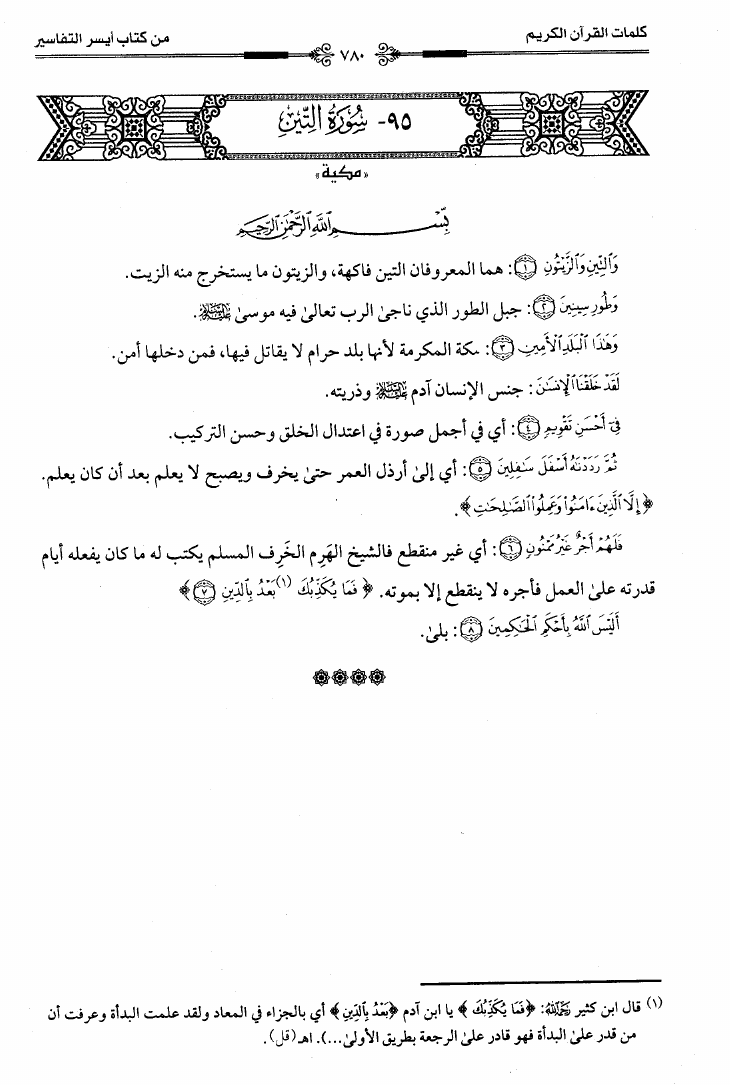 كلمات القرآن الكريم
٧٨٠
من كتاب أيسر التفاسير
٩٥- سُورَةُ التِّين
«مكية»
بِسْمِ اللَّهِ الرَّحْمَٰنِ الرَّحِيمِ
وَالتِّينِ وَالزَّيْتُونِ ﴿١﴾: هما المعروفان التين فاكهة، والزيتون ما يستخرج منه الزيت.
وَطُورِ سِينِينَ ﴿٢﴾: جبل الطور الذي ناجىٰ الرب تعالىٰ فيه موسىٰ عليه السلام.
وَهَٰذَا الْبَلَدِ الْأَمِينِ ﴿٣﴾: مكة المكرمة لأنها بلد حرام لا يقاتل فيها، فمن دخلها أمن.
لَقَدْ خَلَقْنَا الْإِنسَٰنَ: جنس الإنسان آدم عليه السلام وذريته.
فِي أَحْسَنِ تَقْوِيمٍ ﴿٤﴾: أي في أجمل صورة في اعتدال الخلق وحسن التركيب.
ثُمَّ رَدَدْنَٰهُ أَسْفَلَ سَٰفِلِينَ ﴿٥﴾: أي إلىٰ أرذل العمر حتىٰ يخرف ويصبح لا يعلم بعد أن كان يعلم.
﴿إِلَّا الَّذِينَ ءَامَنُوا وَعَمِلُوا الصَّٰلِحَٰتِ﴾.
فَلَهُمْ أَجْرٌ غَيْرُ مَمْنُونٍ ﴿٦﴾: أي غير منقطع فالشيخ الهَرِم الخَرِف المسلم يكتب له ما كان يفعله أيام
قدرته علىٰ العمل فأجره لا ينقطع إلا بموته. ﴿فَمَا يُكَذِّبُكَ (١) بَعْدُ بِالدِّينِ ﴿٧﴾﴾
أَلَيْسَ اللَّهُ بِأَحْكَمِ الْحَٰكِمِينَ ﴿٨﴾: بلىٰ.
(١) قال ابن كثير رحمه الله: ﴿فَمَا يُكَذِّبُكَ﴾ يا ابن آدم ﴿بَعْدُ بِالدِّينِ﴾ أي بالجزاء في المعاد ولقد علمت البدأة وعرفت أن
من قدر علىٰ البدأة فهو قادر علىٰ الرجعة بطريق الأولىٰ...). اهـ (قل).